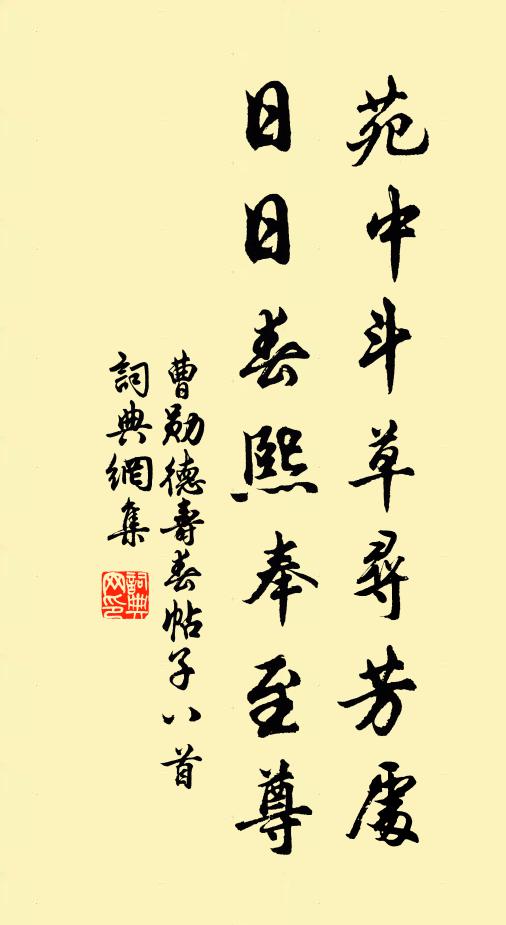 苑中斗草尋芳處
日日春熙奉至尊
曹勛德壽春帖子八首
詞典網集
詞典网印